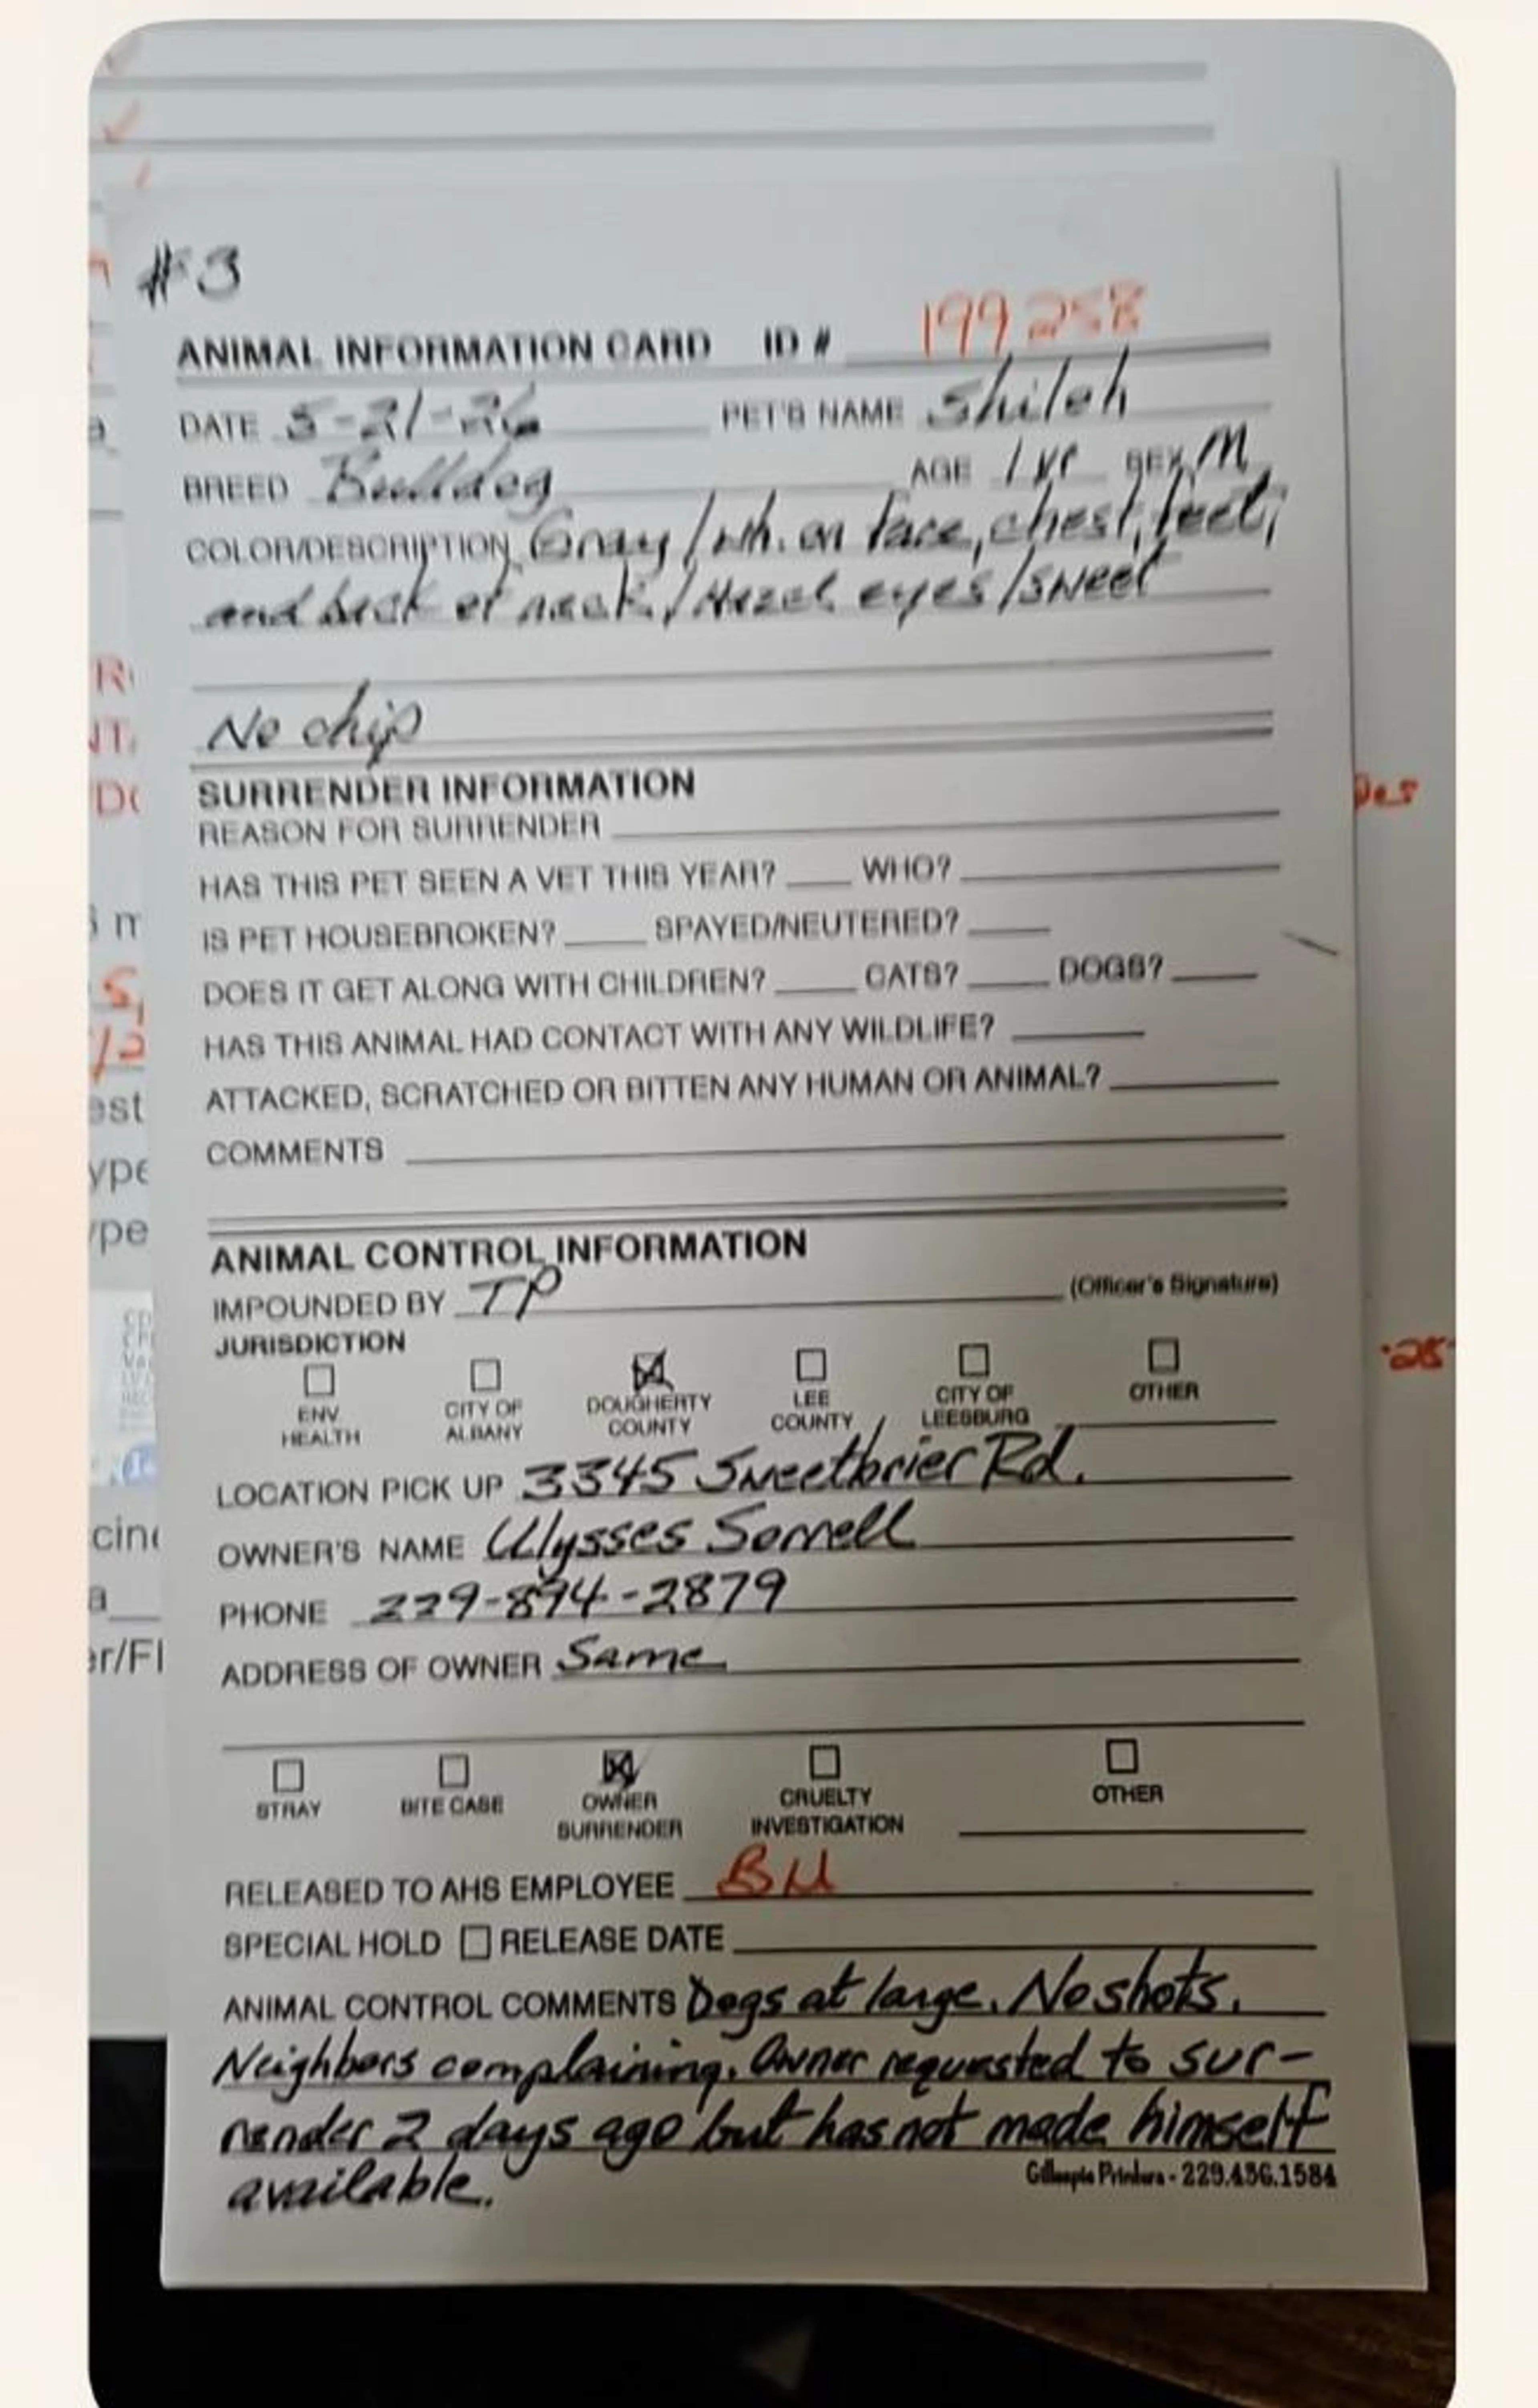 #3
ANIMAL INFORMATION CARD ID # 199258
DATE 5-21-26 PET'S NAME Shiloh
BREED Bulldog AGE 1 yr SEX M
COLOR/DESCRIPTION Gray / wh. on face, chest, feet,
and back of neck / Hazel eyes / sweet
No chip
SURRENDER INFORMATION
REASON FOR SURRENDER
HAS THIS PET SEEN A VET THIS YEAR? WHO?
IS PET HOUSEBROKEN? SPAYED/NEUTERED?
DOES IT GET ALONG WITH CHILDREN? CATS? DOGS?
HAS THIS ANIMAL HAD CONTACT WITH ANY WILDLIFE?
ATTACKED, SCRATCHED OR BITTEN ANY HUMAN OR ANIMAL?
COMMENTS
ANIMAL CONTROL INFORMATION
IMPOUNDED BY TP (Officer's Signature)
JURISDICTION
ENV HEALTH CITY OF ALBANY DOUGHERTY COUNTY LEE COUNTY CITY OF LEESBURG OTHER
LOCATION PICK UP 3345 Sweetbrier Rd.
OWNER'S NAME Ulysses Sorrell
PHONE 229-894-2879
ADDRESS OF OWNER Same
STRAY BITE CASE OWNER SURRENDER CRUELTY INVESTIGATION OTHER
RELEASED TO AHS EMPLOYEE BM
SPECIAL HOLD RELEASE DATE
ANIMAL CONTROL COMMENTS Dogs at large. No shots.
Neighbors complaining. Owner requested to sur-
render 2 days ago but has not made himself
available.
Gillespie Printers - 229.436.1584